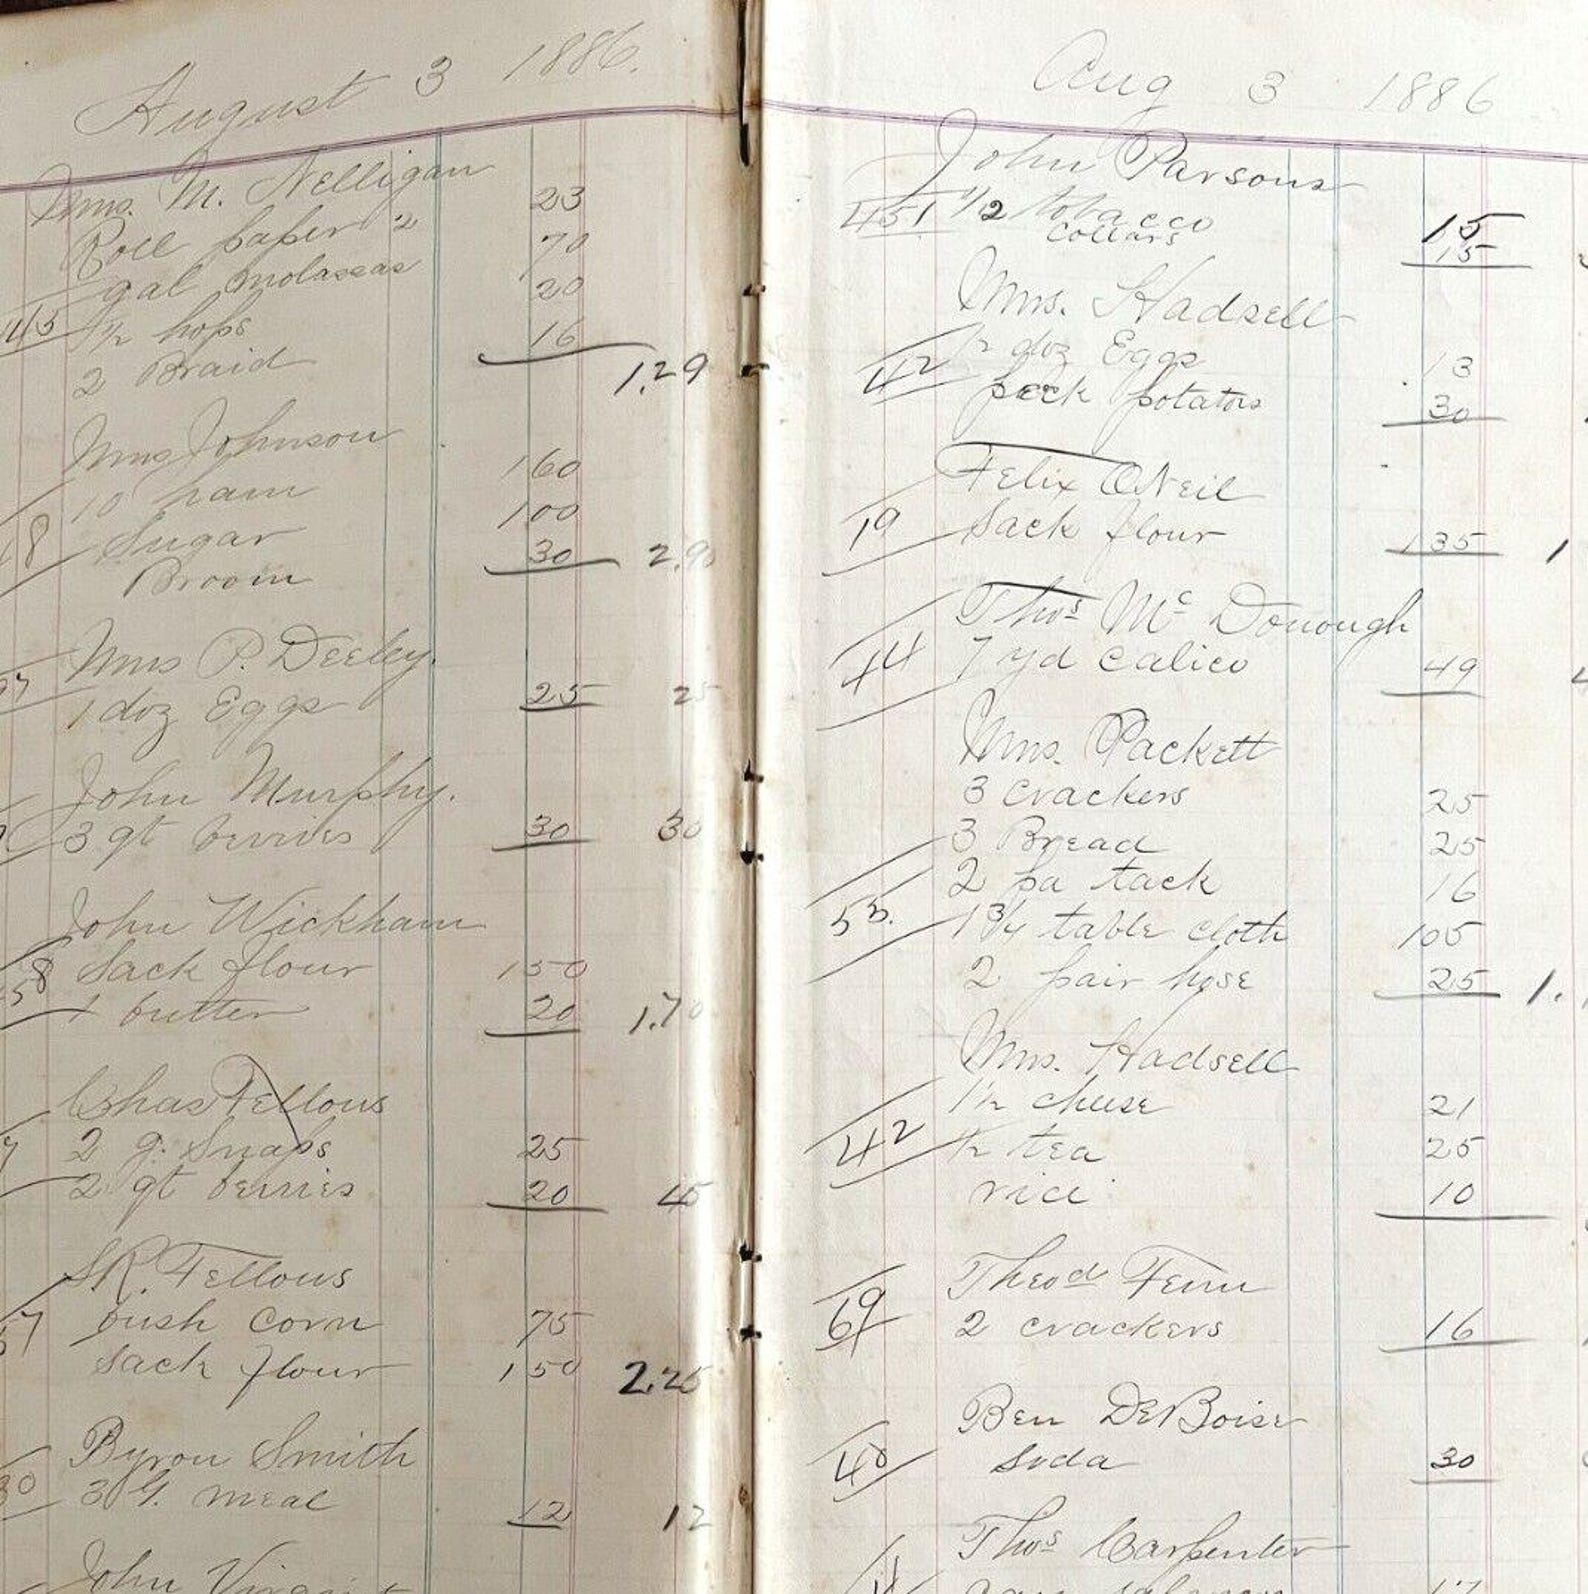 August 3 1886.
Mrs. M. Nelligan
Roll paper 2 23
gal molassas 70
45 1/2 hops 20
2 Braid 16 1.29
Mrs Johnson
10 ham 160
8 Sugar 100
Broom 30 2.90
Mrs P. Deeley.
1 doz Eggs 25 25
John Murphy.
3 qt berries 30 30
John Wickham
Sack flour 150
58 1 butter 20 1.70
Chas Fellows
2 g. Snaps 25
2 qt berries 20 45
SR. Fellows
57 bush corn 75
sack flour 150 2.25
Byron Smith
30 3 G. meal 12 12
John
Aug 3 1886
John Parsons
451 1/2 tobacco 15
collars 15
Mrs. Hadsell
1/2 doz Eggs 13
42 peck potatos 30
Felix ONeil
19 Sack flour 135 1
Thos Mc Donough
44 7 yd calico 49
Mrs. Packett
3 crackers 25
3 Bread 25
2 pa tack 16
53. 1 3/4 table cloth 105
2 pair hose 25 1.
Mrs. Hadsell
1 1/2 cheese 21
42 1/2 tea 25
rice 10
Theod Fenn
69 2 crackers 16
Ben DeBoise
40 Soda 30
Thos Carpenter